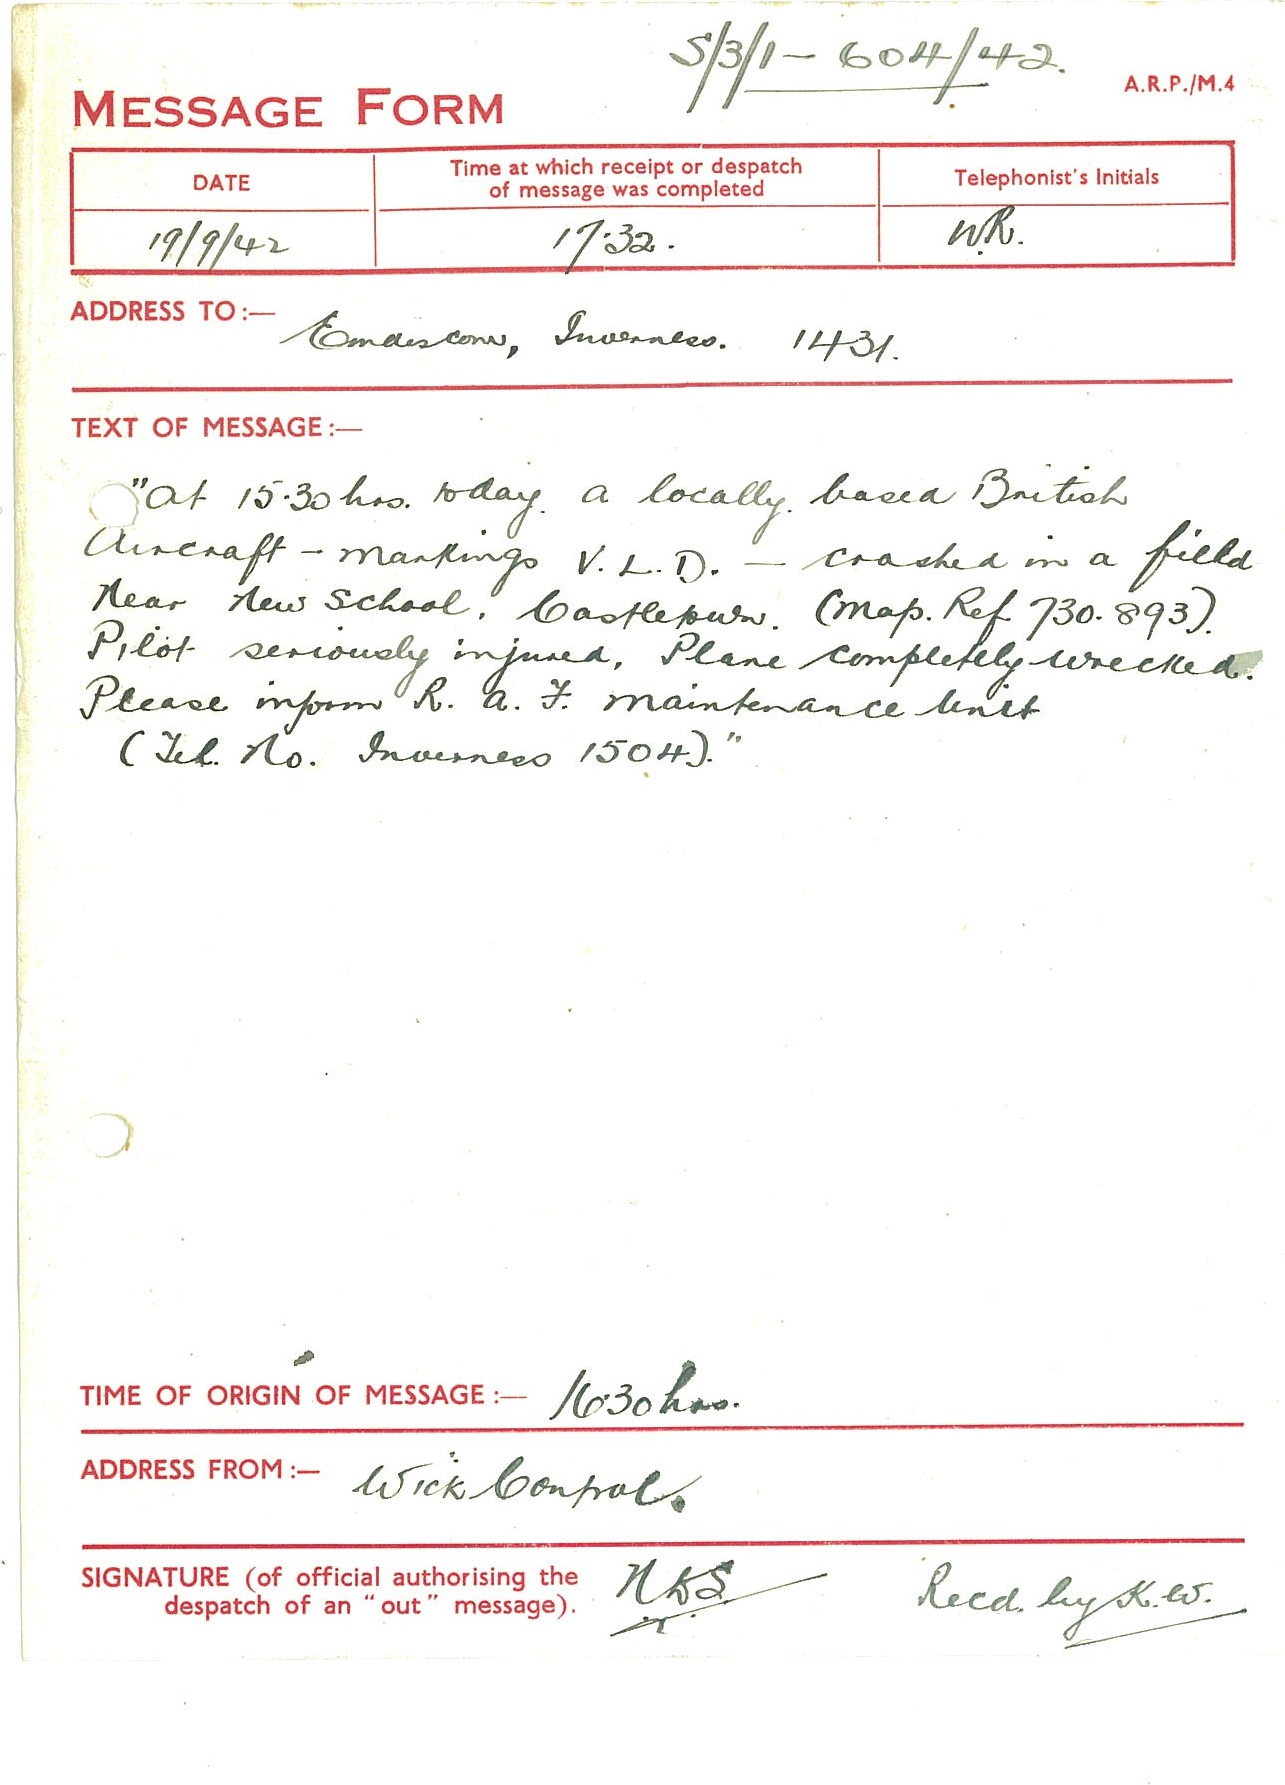 S/3/1 - 604/42.
A.R.P./M.4
MESSAGE FORM
DATE
Time at which receipt or despatch
of message was completed
Telephonist's Initials
19/9/42
17.32.
W.R.
ADDRESS TO:—
Emdescom, Inverness. 1431.
TEXT OF MESSAGE:—
"At 15.30 hrs. today a locally based British
Aircraft - markings V.L.D. - crashed in a field
near New School, Castletown. (Map. Ref. 730.893).
Pilot seriously injured. Plane completely wrecked.
Please inform R.A.F. Maintenance Unit
(Tel. No. Inverness 1504)."
TIME OF ORIGIN OF MESSAGE:— 16.30 hrs.
ADDRESS FROM:— Wick Control.
SIGNATURE (of official authorising the
despatch of an "out" message).
Recd. by K.W.